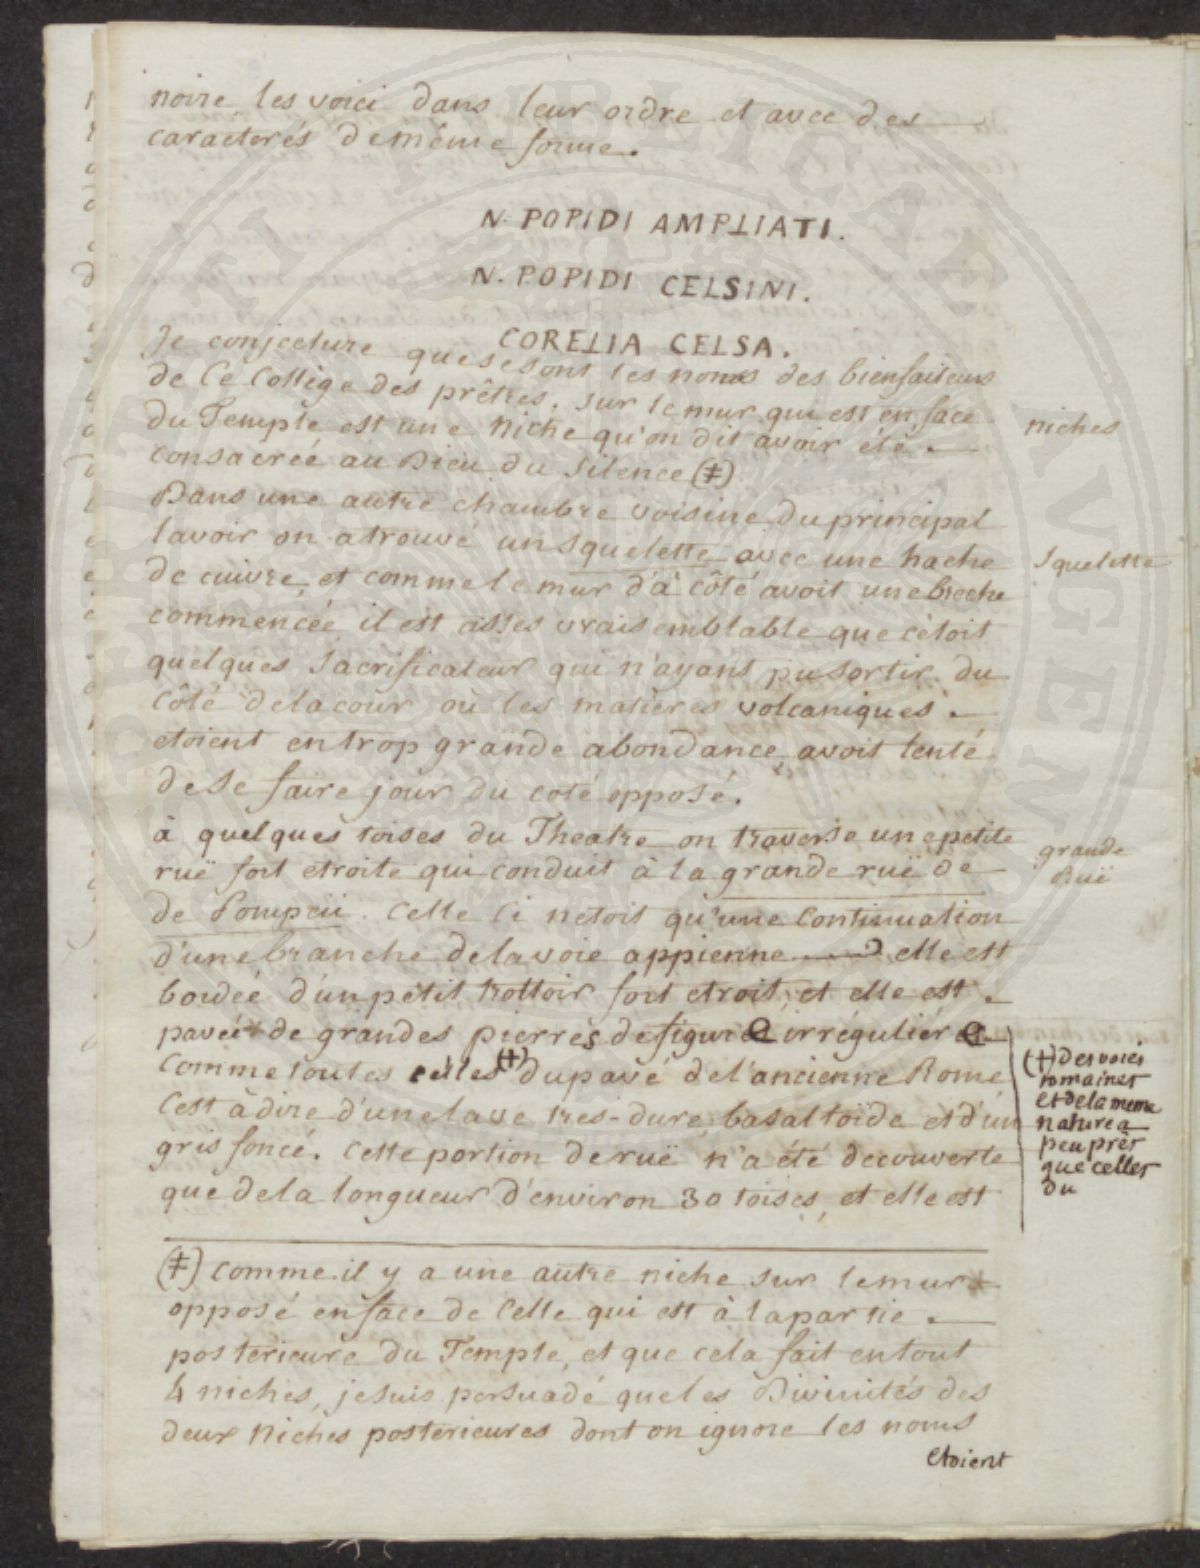 noire, les voici dans leur ordre et avec des
caractères de même forme.
N. POPIDI AMPLIATI.
N. POPIDI CELSINI.
CORELIA CELSA.
Je conjecture que se sont les noms des bienfaiteurs
de ce Collège des prêtres. sur le mur qui est en face
du Temple est une niche qu'on dit avoir été
consacrée au Dieu du silence (‡)
niches
Dans une autre chambre voisine du principal
lavoir on a trouvé un squelette avec une hache
squelette
de cuivre, et comme le mur d'à côté avoit une breche
commencée, il est asses vraisemblable que c'étoit
quelques sacrificateur qui n'ayant pu sortir du
côté de la cour où les matières volcaniques
etoient en trop grande abondance, avoit tenté
de se faire jour du coté opposé.
à quelques toises du Theatre on traverse une petite
ruë fort etroite qui conduit à la grande ruë de
grande
Ruë
de Pompeii. Celle ci n'etoit qu'une continuation
d'une branche de la voie appienne elle est
bordée d'un petit trottoir fort etroit, et elle est
pavée de grandes pierres de figure irrégulière
comme toutes celles (‡) du pavé de l'ancienne Rome
(‡) des voies
romaines
et de la meme
nature a
peu près
que celles
du
C'est à dire d'une lave tres-dure, basaltoide et d'un
gris foncé. Cette portion de ruë n'a été decouverte
que de la longueur d'environ 30 toises, et elle est
(‡) comme il y a une autre niche sur le mur
opposé en face de celle qui est à la partie
posterieure du Temple, et que cela fait en tout
4 niches, je suis persuadé que les Divinités des
deux niches posterieures dont on ignore les noms
etoient